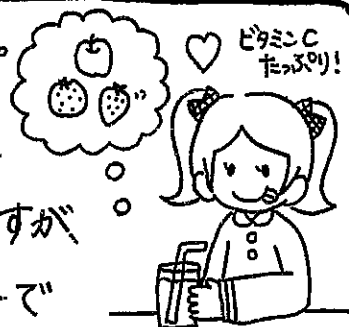 ビタミンC
たっぷり!
すが、
で